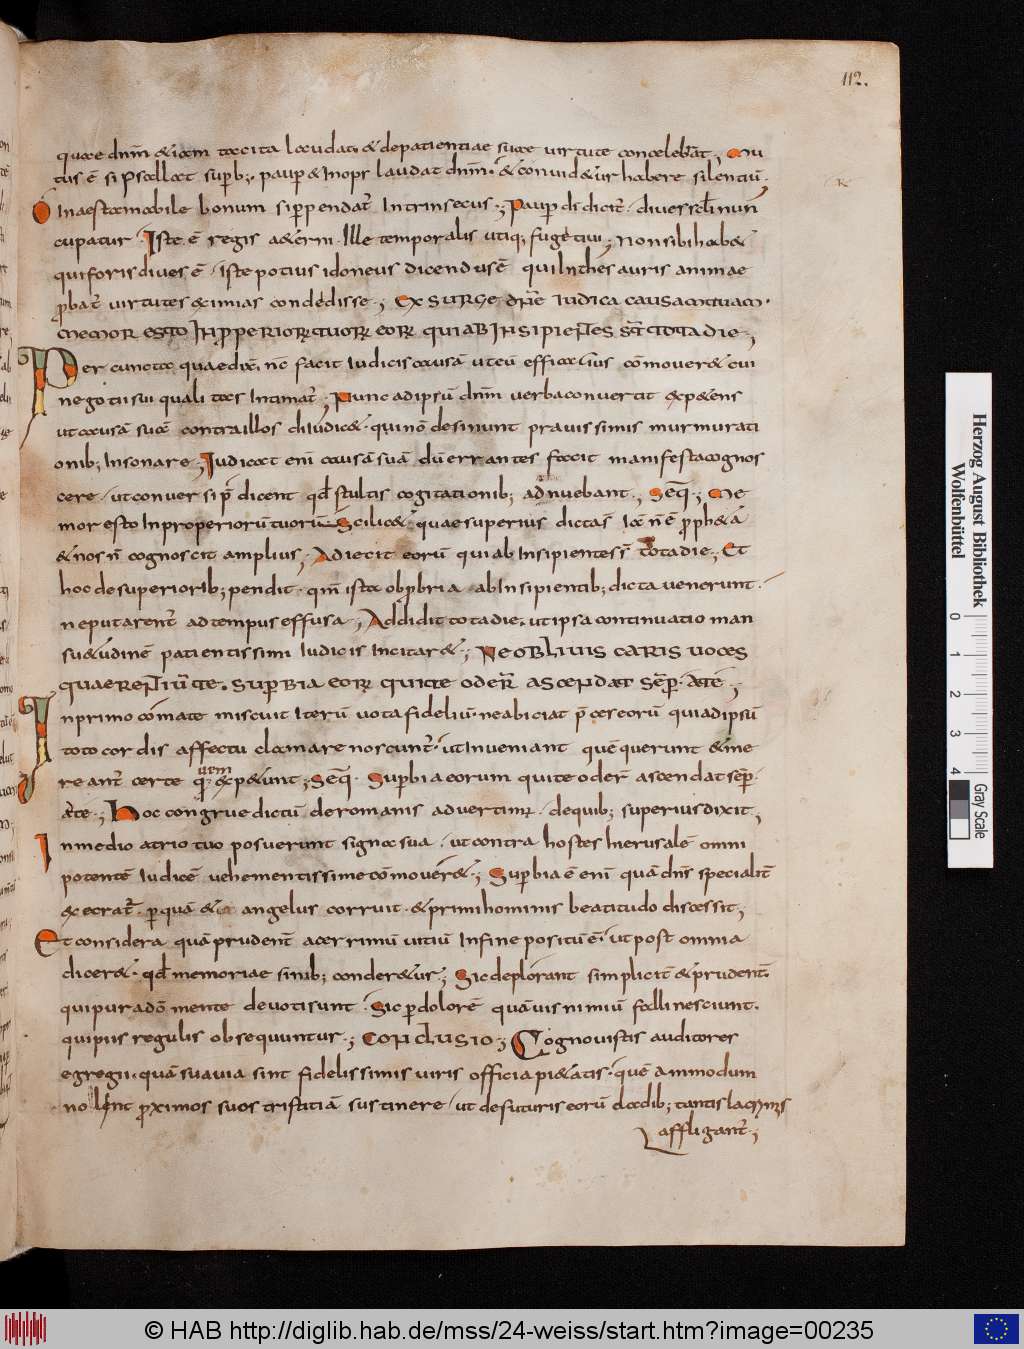 112.
quae dnm̄ & iam tacita laudat. & depatientiae suae virtute concelebrat; Mu
tus ē si psallat superb; pauper & Inopr laudat dnm̄. & conuid&ur habere silentiū.
O Inaestimabile bonum si perpendat̄ Intrinsecus; Pauper di dicit̄. diues seculi nun
cupatur. Iste ē regis aeterni. Ille temporalis utiq; fugitiui; Non sibi hab&
qui foris diues ē. iste potius idoneus dicendus ē qui Inthesauris animae
probat̄ uirtutes eximias condedisse; EXSURGE DN̄E IUDICA CAUSAM TUAM.
MEMOR ESTO INPROPERIORUM TUORUM EORUM QUI AB INSIPIENTES SUNT TOTA DIE;
Per cuncta quae dix̄. nc̄ facit Iudicis causā ut eū efficacius cōmouer& cui
negotii sui qualitas Intimat̄; Nunc ad ipsū dnm̄ uerba conuertit exp&ens
ut causā suā contra illos diiudic&. qui nō desinunt prauissimis murmurati
onib; Insonare; Iudicat enī causā suā dū errantes facit manifesta cognos
cere. ut conuersi p̄dicent qd̄ stultis cogitationib; adnuebant; Seq̄; Me
mor esto Inproperiorū tuorū Scilic& quae superius dicta s̄. Ioc̄ n̄ ē proph&a
& nos n̄ cognoscit amplius; Adiecit eorū qui ab Insipientes s̄ tota die; Et
hoc de superiorib; pendit. qm̄ ista obprobria ab Insipientib; dicta uenerunt.
ne putarent̄ ad tempus effusa; Addidit tota die. ut ipsa continuatio man
su&udinē patientissimi Iudicis Incitar&; NE OBLIUISCARIS UOCES
QUAERENTIU͞ TE. SUPERBIA EORUM QUI TE ODERŪ ASCENDAT SĒP. AD TE;
In primo cōmate miscuit Iterū uota fideliū. ne abiciat p̄ces eorū qui ad ipsū
toto cordis affectu clamare noscunt̄. ut Inueniant quē querunt & me
reant̄ certe quem exp&unt; Seq̄. Superbia eorum qui te oder̄ ascendat sēp.
ad te; Hoc congrue dictū de romanis aduertimur. de quib; superius dixit;
In medio atrio tuo posuerunt signa sua. ut contra hostes hierusalē omni
potentē Iudicē uehementissime cōmouer&; Superbia ē enī quā dn̄s specialit̄
execrat̄. per quā & angelus corruit. & primi hominis beatitudo discessit;
Et considera quā prudent̄ acerrimū uitiū In fine positū ē. ut post omnia
dicer&. qd̄ memoriae sinib; conder&ur; Sic deplorant simplicit̄ & prudent̄
qui pura dō mente deuoti sunt. Sic per dolorē quāuis nimiū falli nesciunt.
qui piis regulis obsequuntur; CONCLUSIO; Cognouistis auditores
egregii. quā suauia sint fidelissimis uiris officia pi&atis. quē ammodum
nolent proximos suos tristitiā sustinere. ut de futuris eorū cladib; tantis lacrimis
affligant̄;
Herzog August Bibliothek
Wolfenbüttel
0 1 2 3 4
Gray Scale
© HAB http://diglib.hab.de/mss/24-weiss/start.htm?image=00235